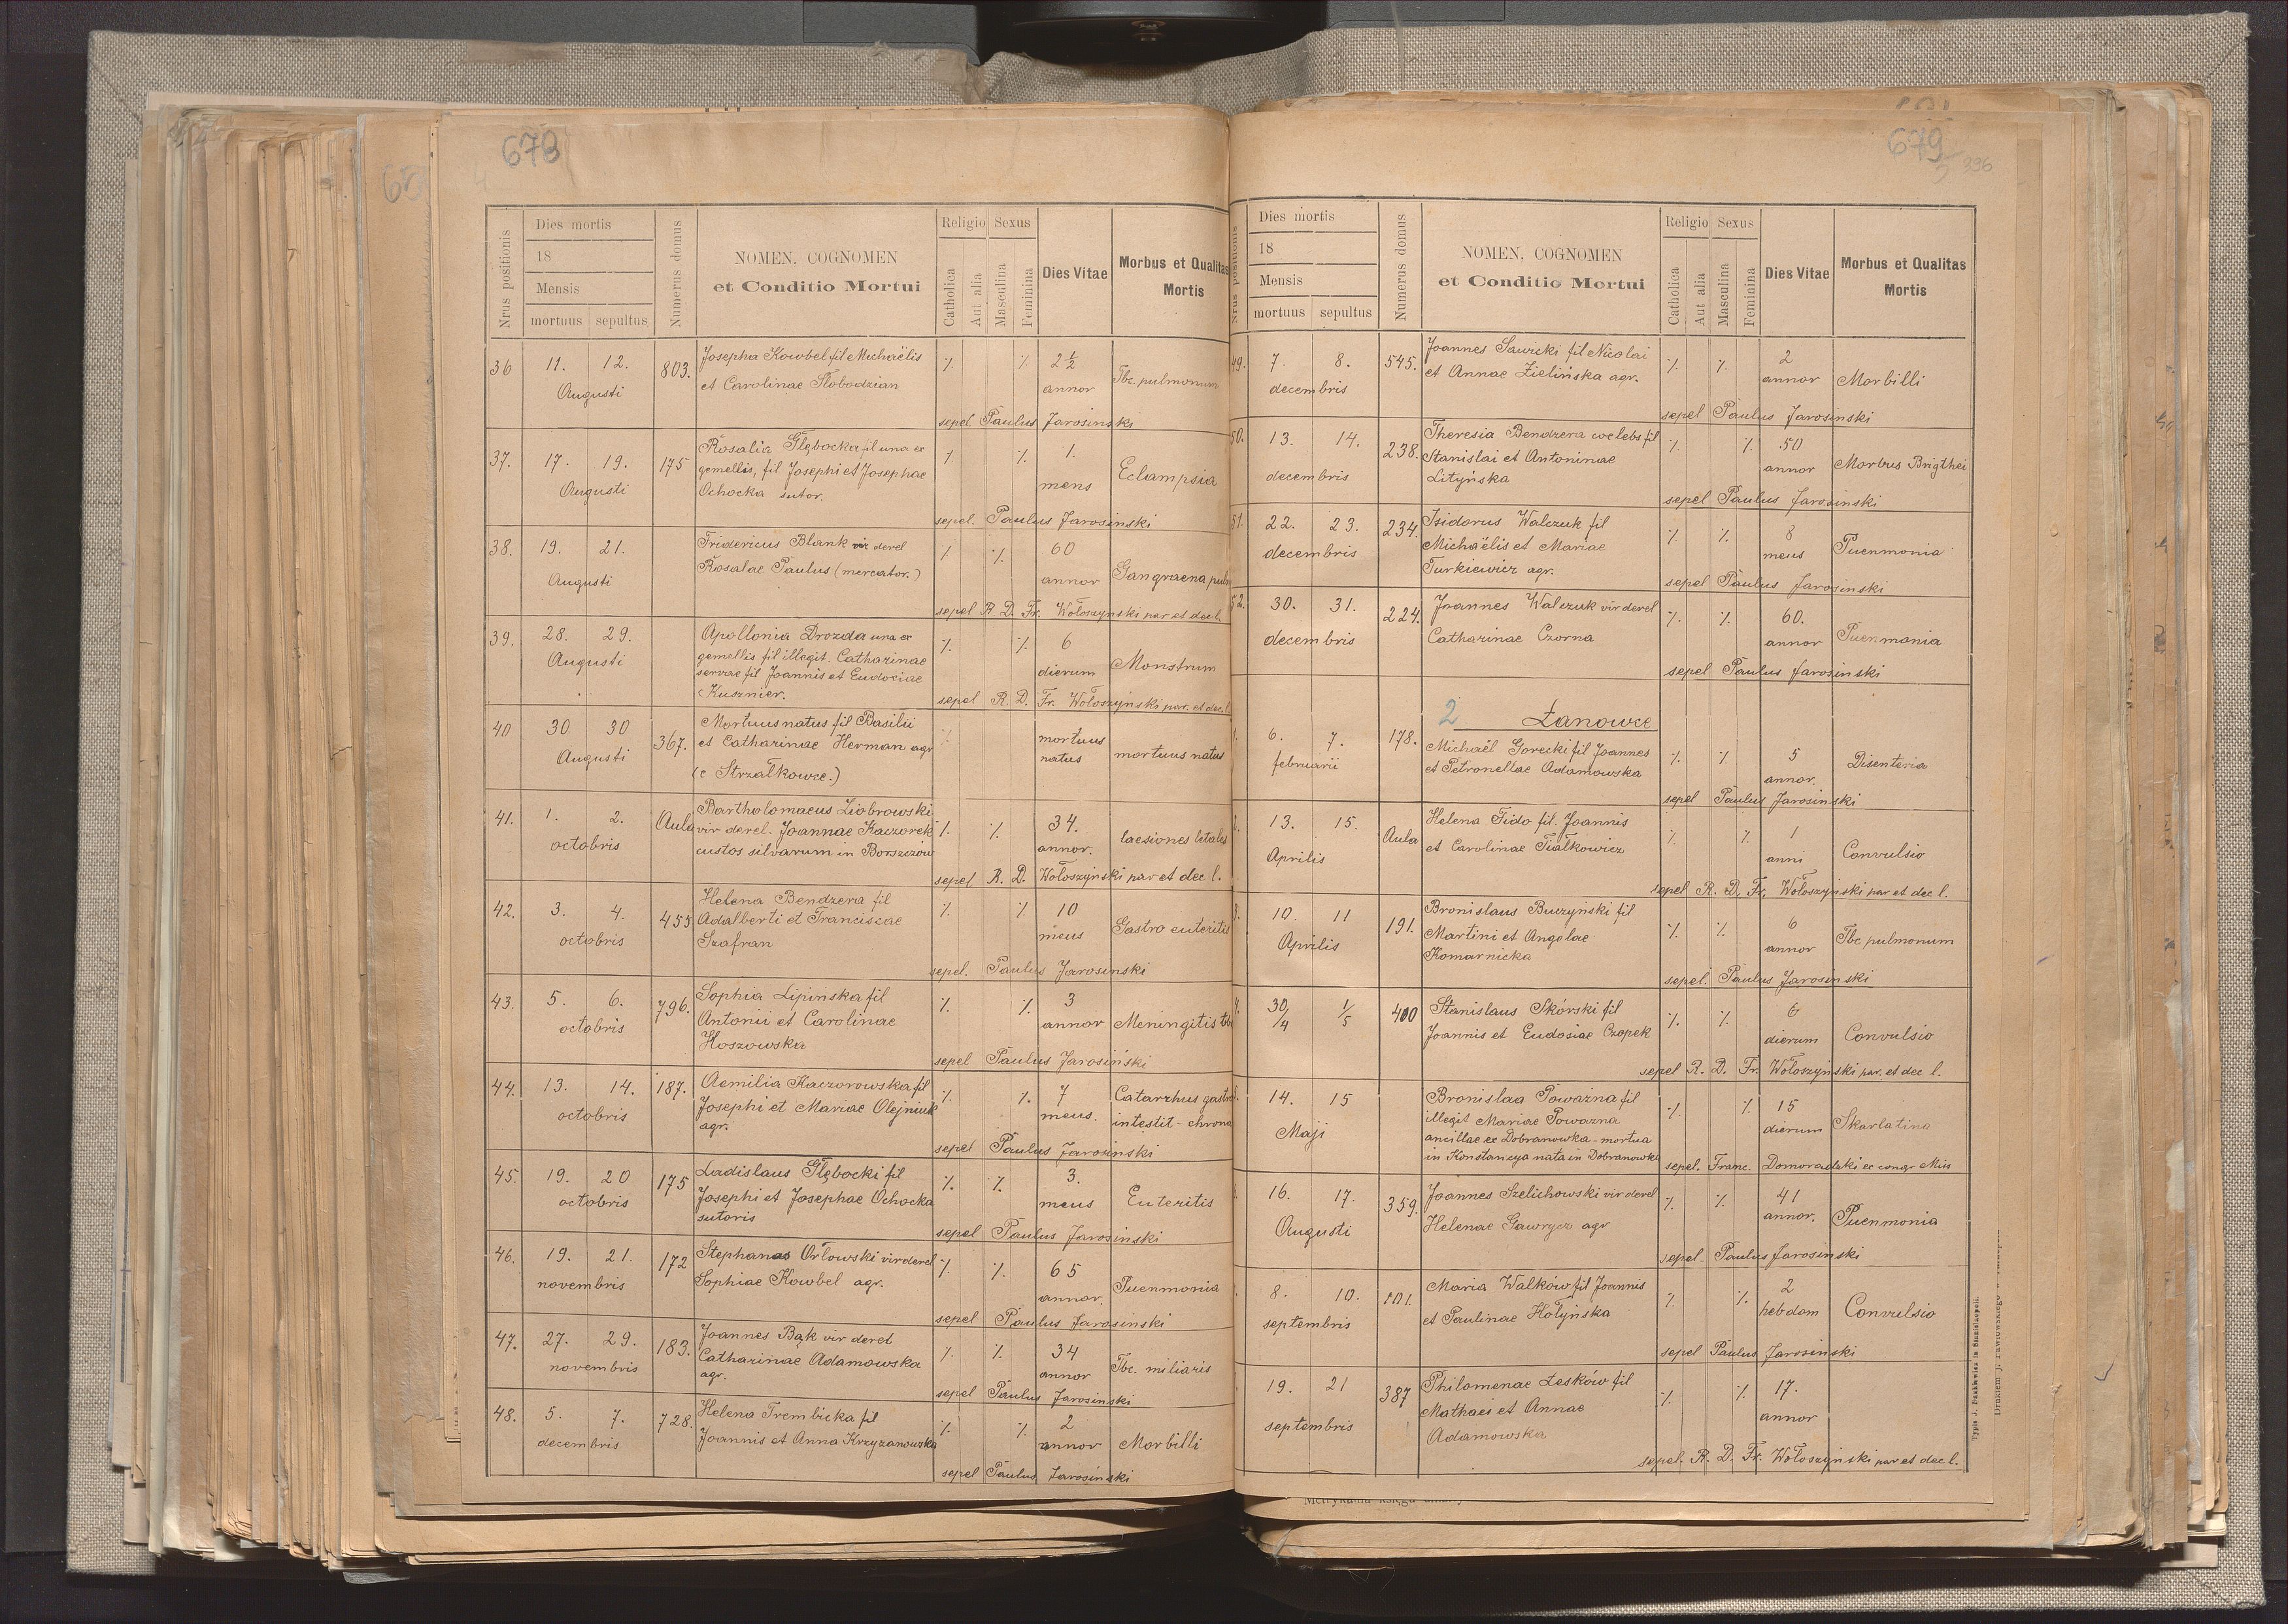 678
Nrus positionis
Dies mortis
18
Mensis
mortuus sepultus
Numerus domus
NOMEN, COGNOMEN
et Conditio Mortui
Religio Sexus
Catholica
Aut alia
Masculina
Feminina
Dies Vitae
Morbus et Qualitas
Mortis
36 11. 12. Augusti 803.
Josepha Kowbel fil Michaëlis
et Carolinae Słobodzian
٪ ٪ 2½ annor Tbc. pulmonum
sepel Paulus Jarosinski
37. 17. 19. Augusti 175
Rosalia Głębocka fil una ex
gemellis, fil Josephi et Josephae
Ochocka sutor.
٪ ٪ 1. mens Eclampsia
sepel. Paulus Jarosinski
38. 19. 21. Augusti
Fridericus Blank vir derel
Rosalae Paulus (mercator.)
٪ ٪ 60 annor Gangraena pulm
sepel R. D. Fr. Wołoszynski par et dec l.
39. 28. 29. Augusti
Apollonia Drozda una ex
gemellis fil illegit. Catharinae
servae fil Joannis et Eudociae
Kusznier.
٪ ٪ 6 dierum Monstrum
sepel R. D. Fr. Wołoszyński par. et dec. l.
40 30 30 Augusti 367.
Mortuus natus fil Basilii
et Catharinae Herman agr
(e Strzałkowce.)
٪ mortuus natus mortuus natus
41. 1. 2. octobris Aula
Bartholomaeus Ziobrowski
vir derel. Joannae Kaczorek
custos silvarum in Borszczów
٪ ٪ 34. annor. laesiones letales
sepel R. D. Wołoszyński par et dec l.
42. 3. 4. octobris 455
Helena Bendzera fil
Adalberti et Franciscae
Szafran
٪ ٪ 10 meus Gastro enteritis
sepel. Paulus Jarosinski
43. 5. 6. octobris 796.
Sophia Lipińska fil
Antonii et Carolinae
Hoszowska
٪ ٪ 3 annor Meningitis tbc
sepel Paulus Jarosiński
44. 13. 14. octobris 187.
Aemilia Kaczorowska fil
Josephi et Mariae Olejniuk
agr.
٪ ٪ 7 meus. Catarrhus gastro
intestit - chrona
sepel Paulus Jarosinski
45. 19. 20 octobris 175
Ladislaus Głębocki fil
Josephi et Josephae Ochocka
sutoris
٪ ٪ 3. meus Enteritis
sepel Paulus Jarosinski
46. 19. 21. novembris 172
Stephanas Orłowski vir derel
Sophiae Kowbel agr.
٪ ٪ 65 annor. Puenmonia
sepel Paulus Jarosinski
47. 27. 29. novembris 183.
Joannes Bąk vir derel
Catharinae Adamowska
agr.
٪ ٪ 34 annor Tbc. miliaris
sepel Paulus Jarosinski
48. 5. 7. decembris 728.
Helena Trembicka fil
Joannis et Anna Krzyzanowska
٪ ٪ 2 annor Morbilli
sepel Paulus Jarosinski
679
336
Nrus positionis
Dies mortis
18
Mensis
mortuus sepultus
Numerus domus
NOMEN, COGNOMEN
et Conditio Mortui
Religio Sexus
Catholica
Aut alia
Masculina
Feminina
Dies Vitae
Morbus et Qualitas
Mortis
49. 7. 8. decembris 545.
Joannes Sawicki fil Nicolai
et Annae Zielińska agr.
٪ ٪ 2 annor Morbilli
sepel Paulus Jarosinski
50. 13. 14. decembris 238.
Theresia Bendzera coelebs fil
Stanislai et Antoninae
Lityńska
٪ ٪ 50 annor Morbus Brigthei
sepel Paulus Jarosinski
51. 22. 23. decembris 234.
Isidorus Walczuk fil
Michaëlis et Mariae
Turkiewicz agr.
٪ ٪ 8 meus Puenmonia
sepel Paulus Jarosinski
52. 30. 31. decembris 224.
Joannes Walczuk vir derel
Catharinae Czorna
٪ ٪ 60. annor Puenmonia
sepel Paulus Jarosinski
2 Łanowce
1. 6. 7. februarii 178.
Michaël Gorecki fil Joannes
et Petronellae Adamowska
٪ ٪ 5 annor. Disenteria
sepel Paulus Jarosinski
2. 13. 15. Aprilis Aula
Helena Fido fil. Joannis
et Carolinae Fiałkowicz
٪ ٪ 1 anni Convulsio
sepel R. D. Fr. Wołoszyński par et dec l.
3. 10. 11 Aprilis 191.
Bronislaus Buczyński fil
Martini et Angelae
Komarnicka
٪ ٪ 6 annor Tbc pulmonum
sepel. Paulus Jarosinski
4. 30/4 1/5 400
Stanislaus Skórski fil
Joannis et Eudosiae Czopek
٪ ٪ 6 dierum Convulsio
sepel R. D. Fr. Wołoszyński par. et dec l.
5. 14. 15 Maji
Bronislaa Powazna fil
illegit Mariae Powazna
ancillae ex Dobranowka - mortua
in Konstancya nata in Dobranowka
٪ ٪ 15 dierum Skarlatina
sepel. Franc. Domoradzki ex congr Mis
16. 17. Augusti 359.
Joannes Szelichowski vir derel
Helenae Gawrycz agr
٪ ٪ 41 annor. Puenmonia
sepel Paulus Jarosinski
8. 10. septembris 101.
Maria Walków fil Joannis
et Paulinae Hołyńska
٪ ٪ 2 hebdom Convulsio
sepel Paulus Jarosinski
19. 21 septembris 387
Philomenae Łesków fil
Mathaei et Annae
Adamowska
٪ ٪ 17. annor
sepel. R. D. Fr. Wołoszyński par et dec l.